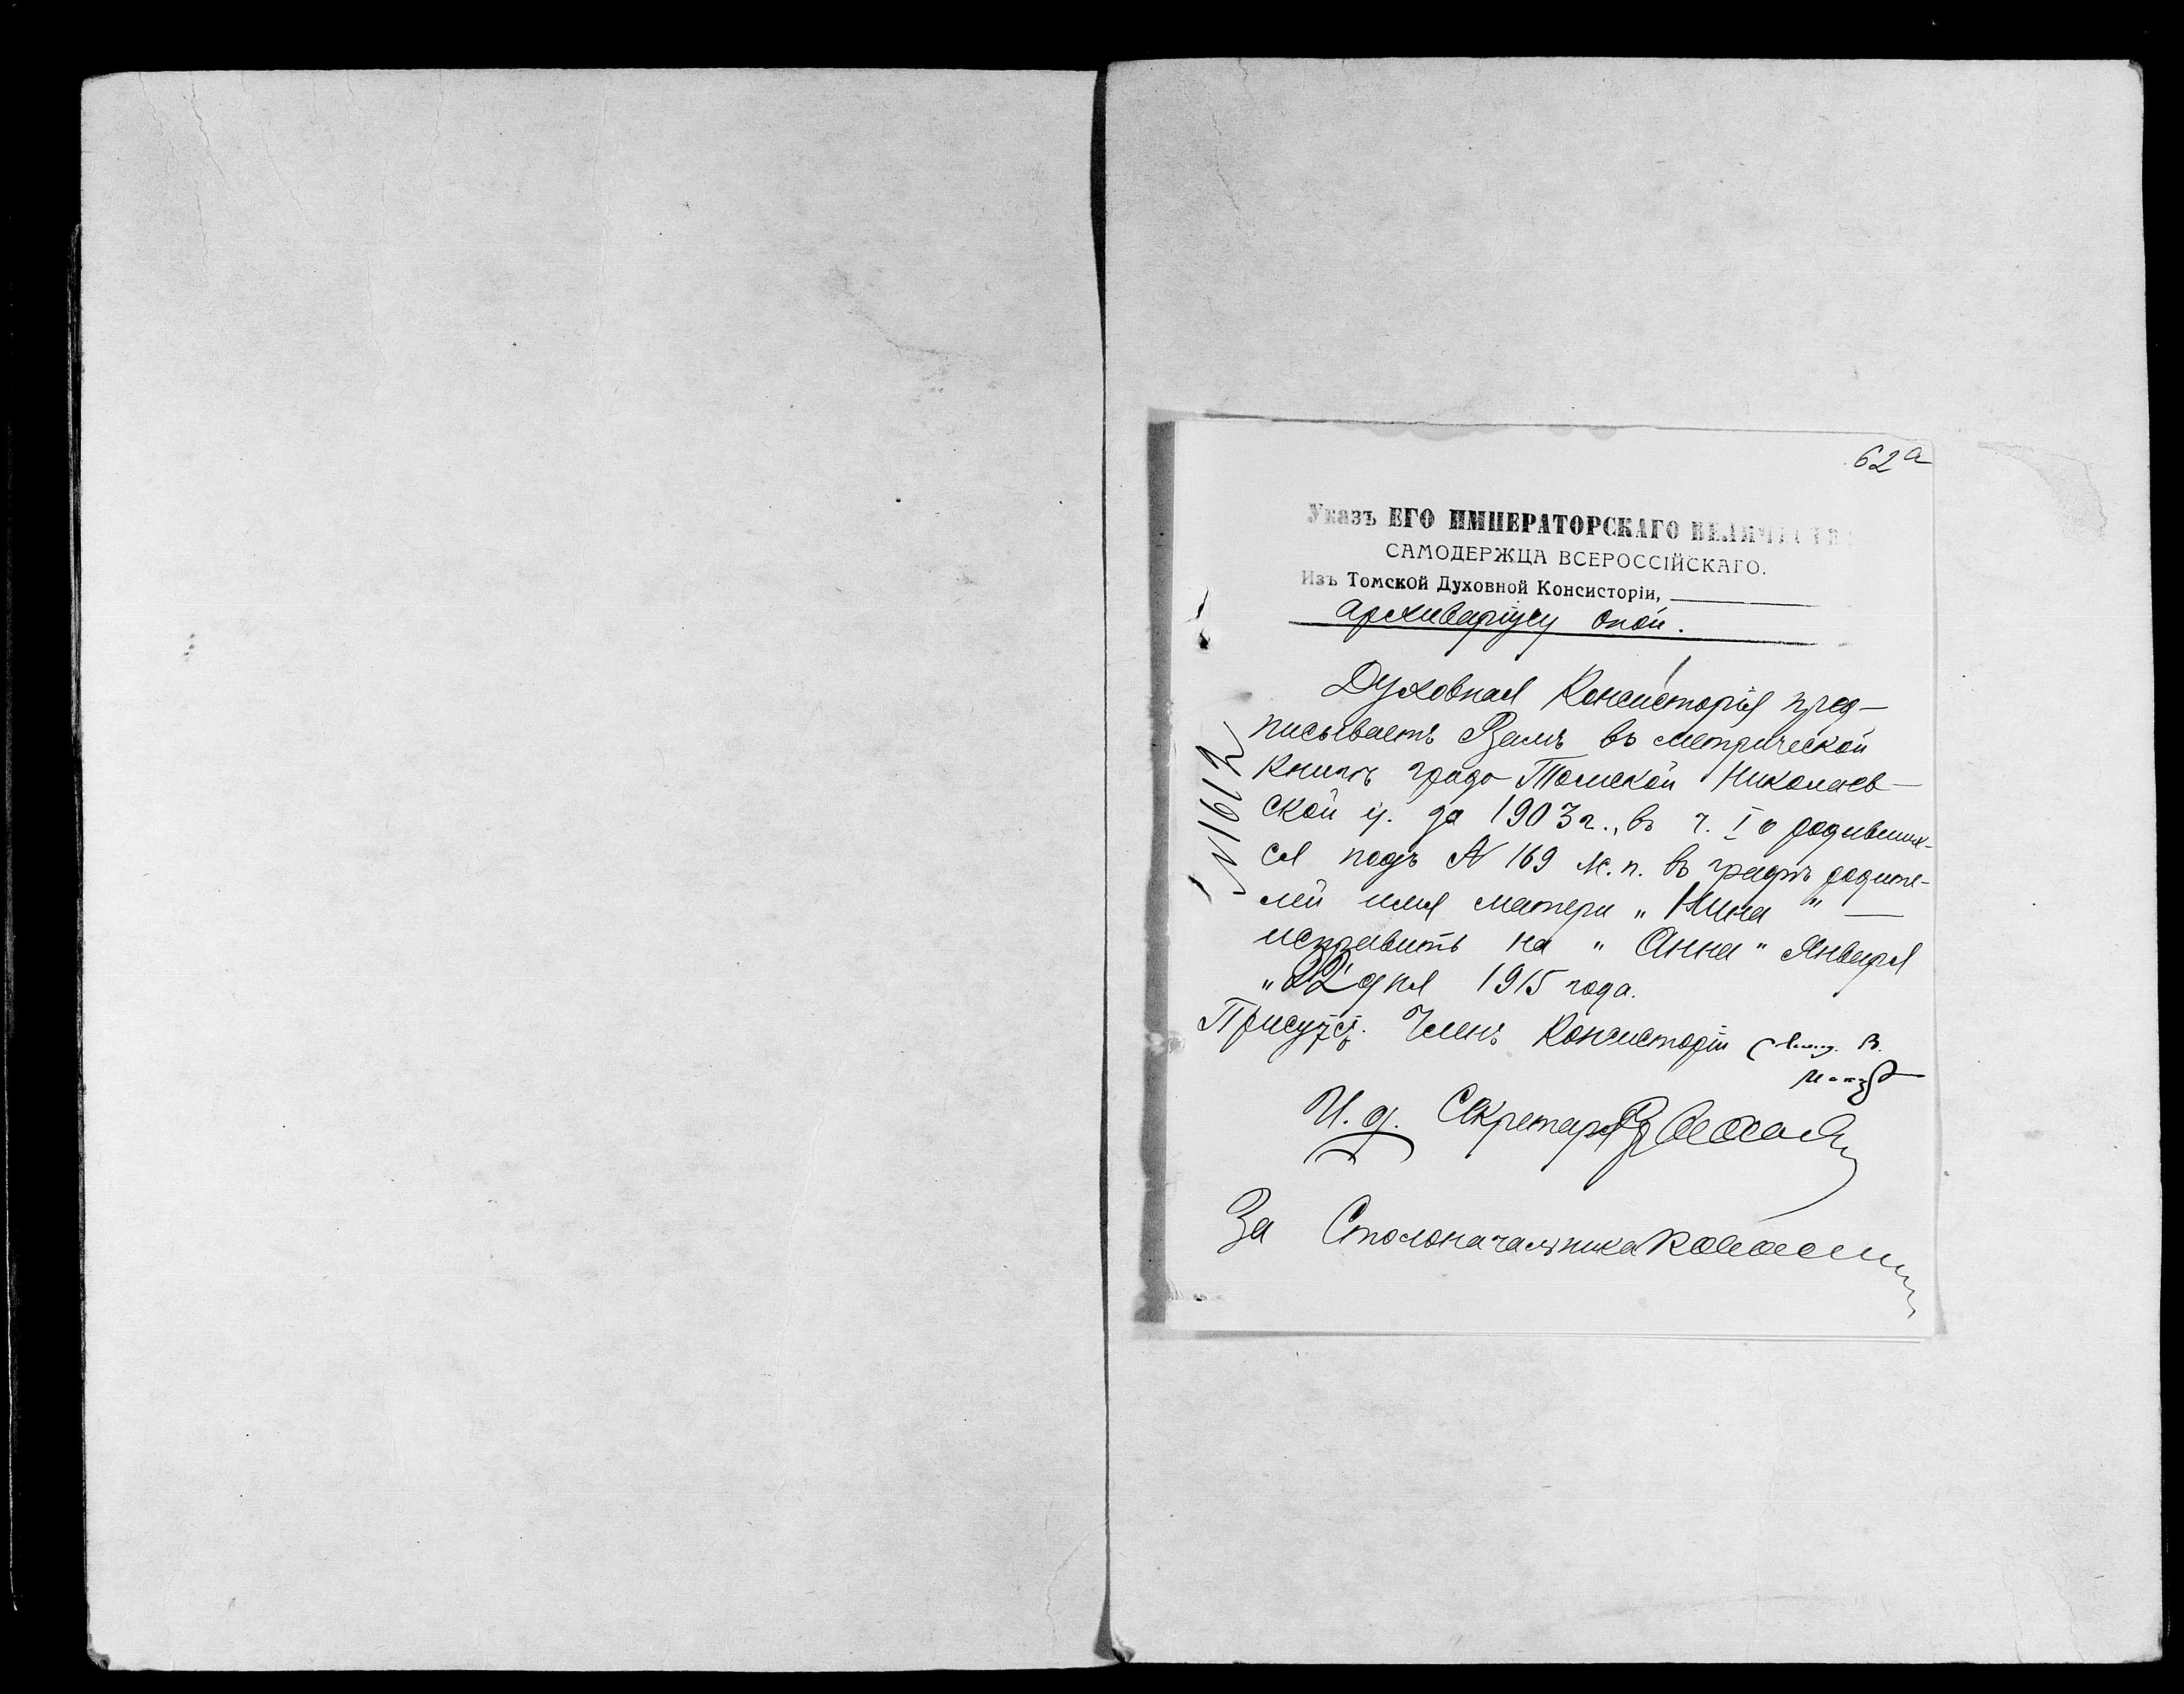 62а
Указъ ЕГО ИМПЕРАТОРСКАГО ВЕЛИЧЕСТВ
САМОДЕРЖЦА ВСЕРОССІЙСКАГО.
Изъ Томской Духовной Консисторіи,
архиваріусу оной.
Духовная Консисторія пред-
писываетъ Вамъ въ метрической
книгѣ градо-Томской Николаев-
ской ц. за 1903 г., въ ч. I о родивших-
ся подъ № 169 м. п. въ графѣ родите-
лей имя матери „Нина" —
исправить на „Анна" Января
„22" дня 1915 года.
№ 1612
Присутст. Членъ Консисторіи Свящ. В.
И. д. Секретаря
За Столоначальника